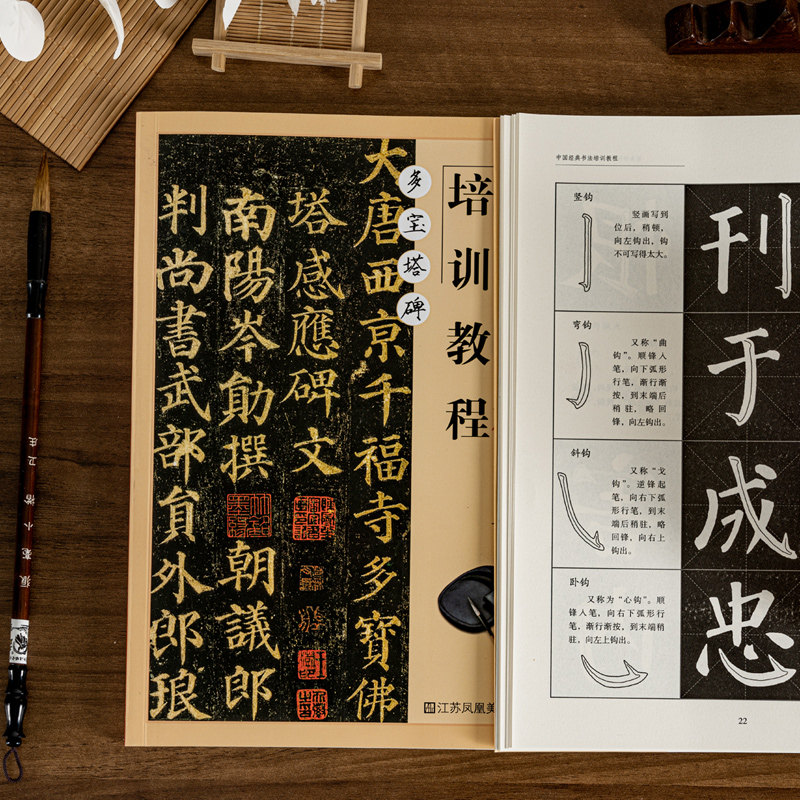 大唐西京千福寺多寶佛
塔感應碑文
南陽岑勛撰
朝議郎
判尚書武部員外郎琅
多宝塔碑
培训教程
江苏凤凰美
中国经典书法培训教程
竖钩
竖画写到
位后，稍顿，
向左钩出，钩
不可写得太大。
刊
弯钩
又称“曲
钩”。顺锋入
笔，向下弧形
行笔，渐行渐
按，到末端后
稍驻，略回
锋，向左钩出。
于
斜钩
又称“戈
钩”。逆锋起
笔，向右下弧
形行笔，到末
端后稍驻，略
回锋，向右上
钩出。
成
卧钩
又称为“心钩”。顺
锋入笔，向右下弧形行
笔，渐行渐按，到末端稍
驻，向左上钩出。
忠
22